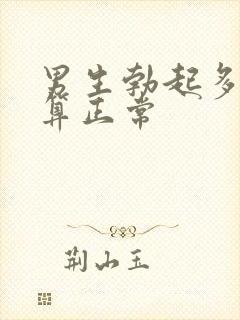 男生勃起多
算正常
荆山玉